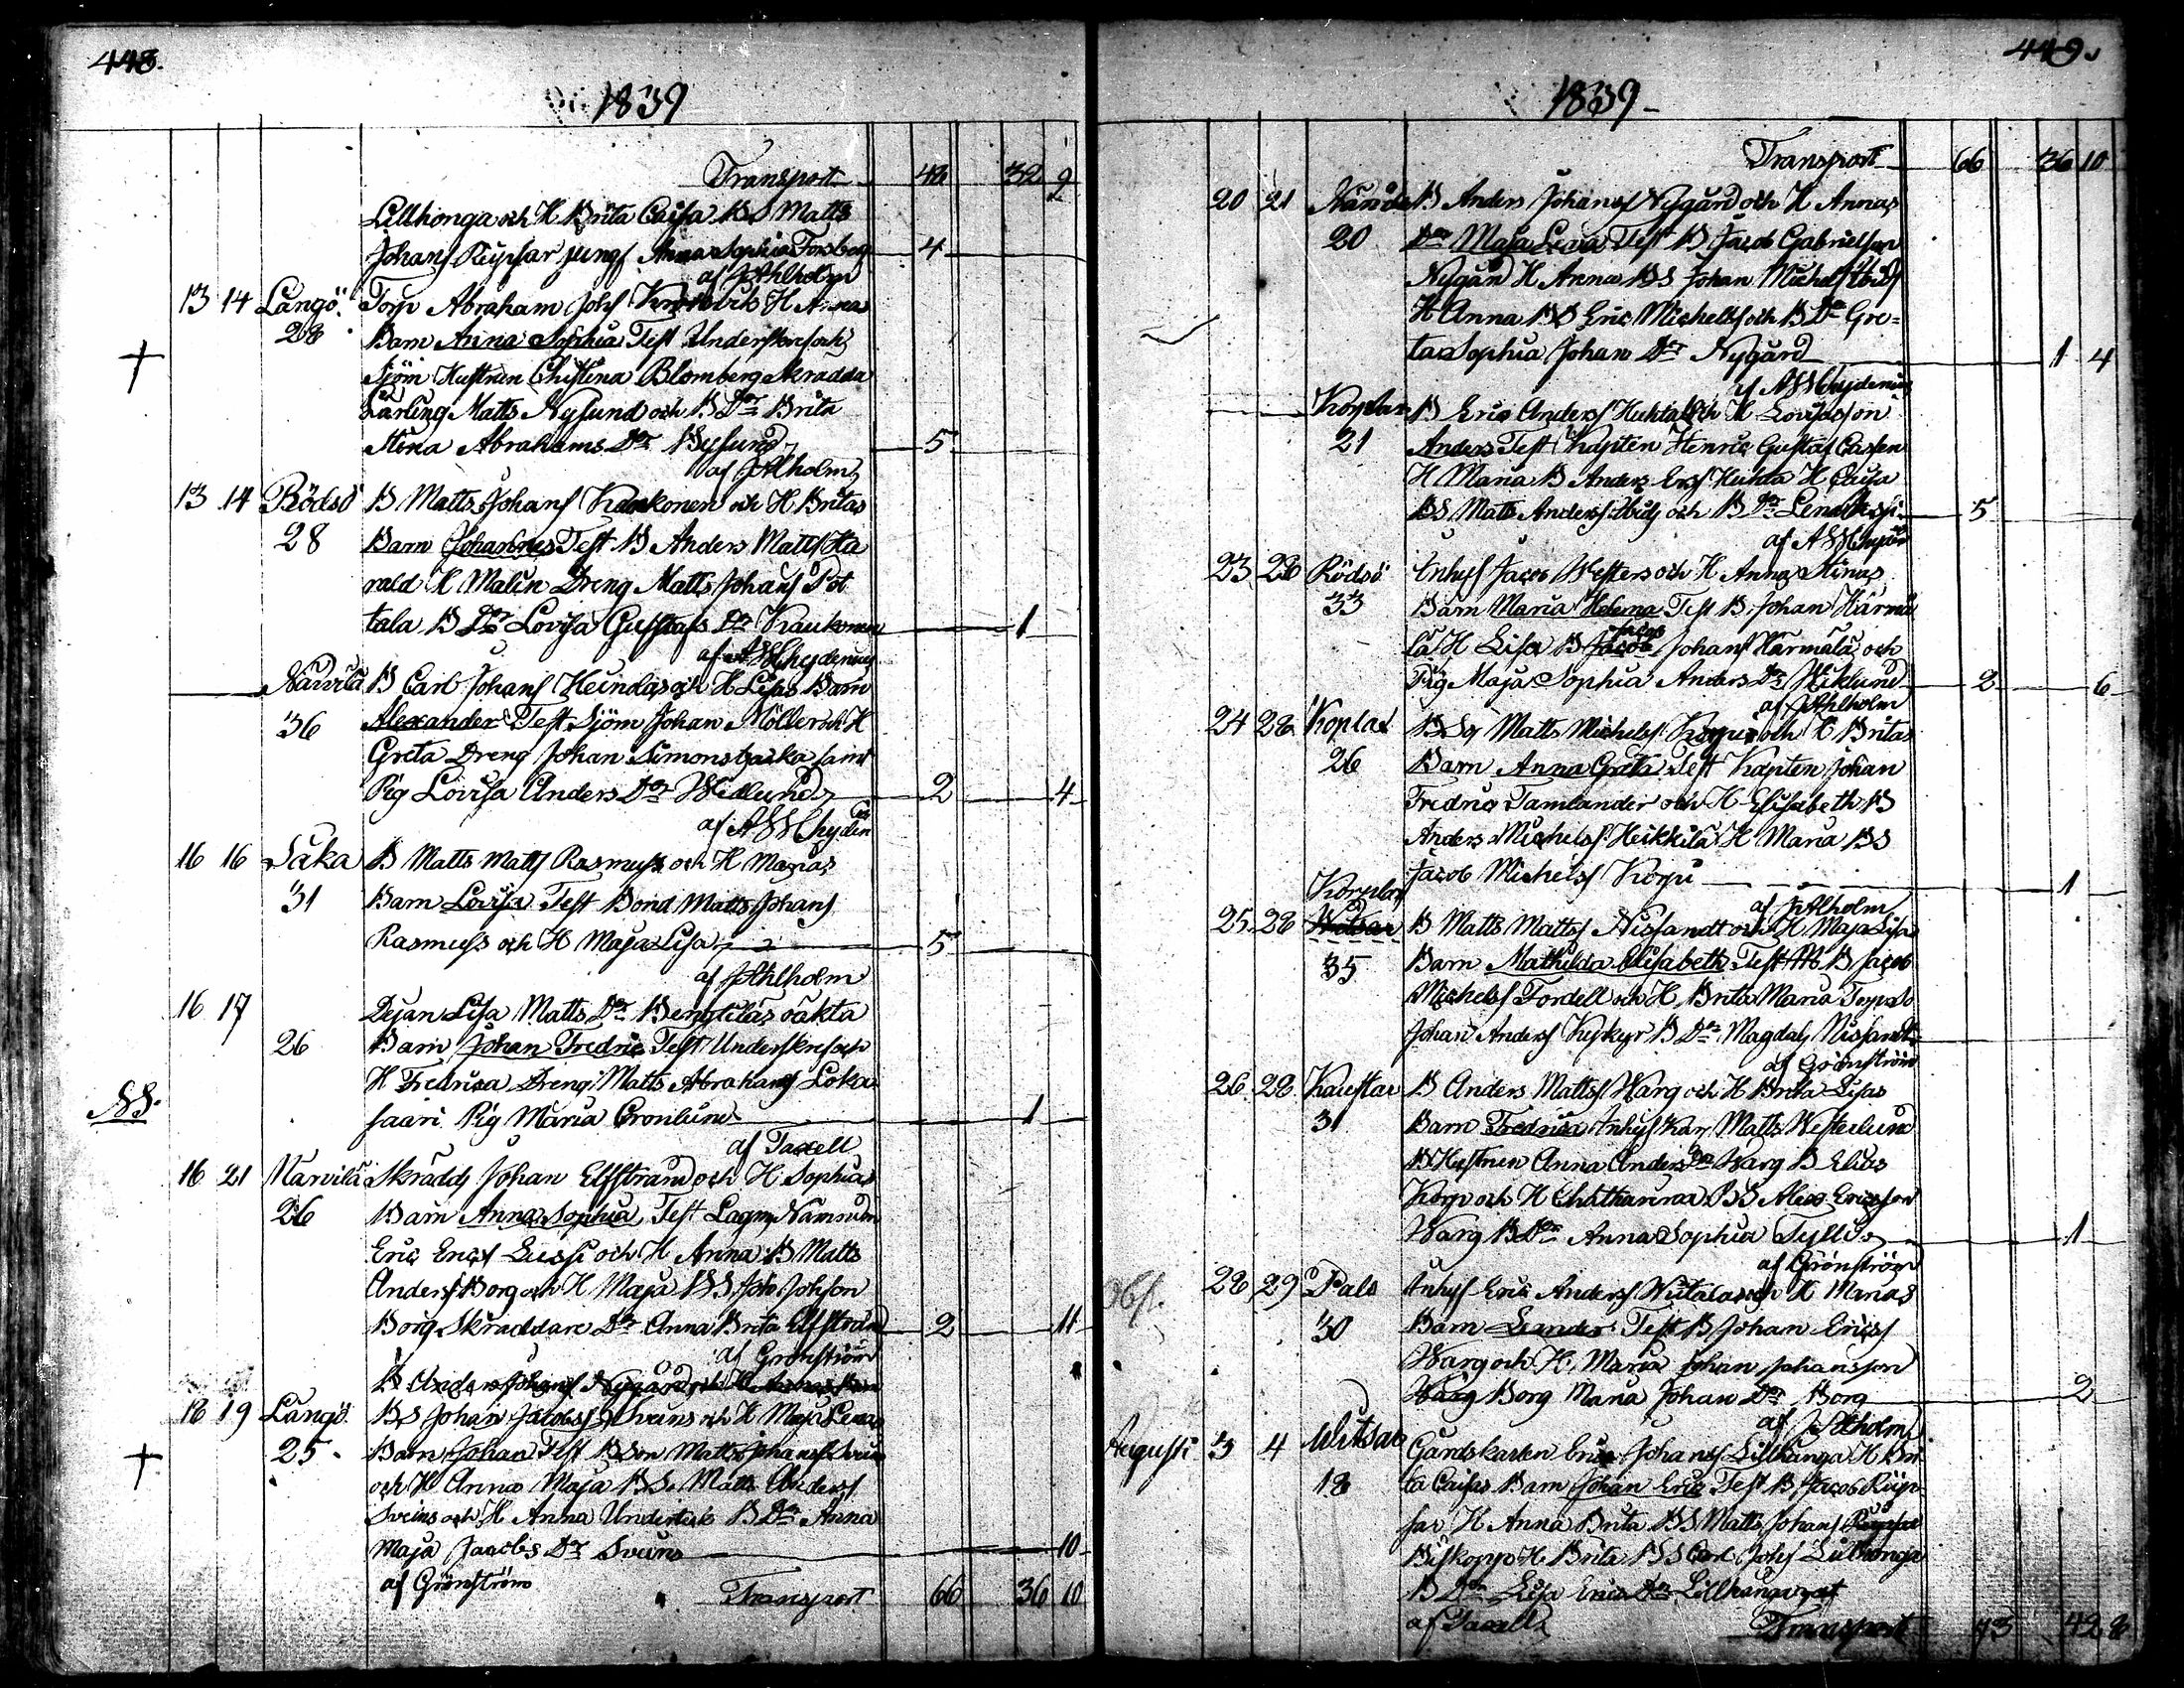 448.
1839
Transport 42 32 9
Lillhonga och H Brita Caisa BS Matts
Johans Rupsar jungf Anna Sophia Forsberg 4
af JAhlholm
13 14 Långö. Torp Abraham Johs H Annas
28 Barn Anna Sophia Test
Sjöm Hustrun Christina Blomberg Skradda
Lärling Matts Nylund och B Dr Brita
Stina Abrahams Dr Nylund 5
af JAhlholm
13 14 Rödsö B Matts Johans Kaukonen och H Britas
28 Barn Johannes Test B Anders Matts Ha
rald H Malin Dreng Matts Johans Pot
tala B Dr Lovisa Gustafs Dr Kaukonen 1
af AWChydenius
Narvila B Carl Johans Heinolas och H Lisas Barn
36 Alexander Test Sjöm Johan Möller och H
Greta Dreng Johan Simons samt
Pig Lovisa Anders Dr Widlund 2 4
af AWChyden
16 16 Såka B Matts Matts Rasmuss och H Marias
31 Barn Lovisa Test Bond Matts Johans
Rasmuss och H Maja Lisa 5
af JAhlholm
16 17 Dejan Lisa Matts Dr Bengtilas oäkta
26 Barn Johan Fredric Test
H Fredrica Dreng Matts Abrahams Loka
saari Pig Maria Gronlund 1
af Taxell
16 21 Narvila Skrädd Johan Elfstrand och H Sophias
26 Barn Anna Sophia Test Lagm Nämndm
Eric Erics och H Anna B Matts
Anders Borg och H Maja BS Joh Johson
Borg Skraddare Dr Anna Brita Elfstrand 2 11
af Gronström
B Anders Johans Nygård och H Annas
18 19 Långö BS Johan Jacobs Sveins och H Maja Lenas
25 Barn Johan Test BSon Matts Johans Svein
och H Anna Maja BS Matts Anders
Sveins och H Anna B Dr Anna
Maja Jacobs Dr Sveins 10
af Grönström
Transport 66 36 10
449.
1839
Transport 66 36 10
20 21 B Anders Johans Nygård och H Annas
20 Dr Maja Lena Test B Jacob Gabrielson
Nygård H Anna BS Johan Michels
H Anna BS Eric Michels och B Dr Gre=
ta Sophia Johan Dr Nygård 1 4
af AWChydenius
Korplax B Eric Anders Huhtala och H Lovisas son
21 Anders Test Kapten Henric Gustaf
H Maria B Anders Ers Huhta H Caisa
BS Matts Anders och B Dr Lena 5
af AWChyd
23 28 Rödsö Inhys Jacob Westers och H Anna Stinas
33 Barn Maria Helena Test B Johan Härmä
lä H Lisa B Jacob Johans Härmälä och
Pig Maja Sophia Anders Dr Wiklund 2 6
af JAhlholm
24 28 Koplax BS Matts Michels Korpi och H Britas
26 Barn Anna Greta Test Kapten Johan
Fredric Tamlander och H Elisabeth B
Anders Michels Heikkilä H Maria BS
Jacob Michels Korpi 1
af JAhlholm
Korplax
25 28 B Matts Matts Nissandt och H Maja Lisas
35 Barn Mathilda Elisabeth Test B Jacob
Michels Fordell och H Brita Maria Torp So
Johan Anders Kyrkyr B Dr Magdal Nissandt
af Grönström
26 28 Kaustar B Anders Matts Warg och H Brita Lisas
31 Barn Fredrica Inhys Kar Matts Westerlund
Hustrun Anna Anders Dr Warg B Elias
Korp och H Chatharina BS Alex Ericsson
Warg B Dr Anna Sophia 1
af Grönström
Obs. 28 29 Palo Inhys Eric Anders och H Marias
30 Barn Leander Test B Johan Erics
Warg och H Maria Johan Johansson
Warg Borg Maria Johan Dr Borg 2
af JAhlholm
Augusti 3 4 Witsar Gårdskarlen Eric Johans Lillhonga H Bri
18 ta Caisas Barn Johan Eric Test B Jacob Ruip
sar H Anna Brita BS Matts Johans Ruipsar
Biskopp H Brita BS Carl Johs Lillhonga
B Dr Lisa Erics Dr Lillhonga
af Taxell
Transport 73 42 8